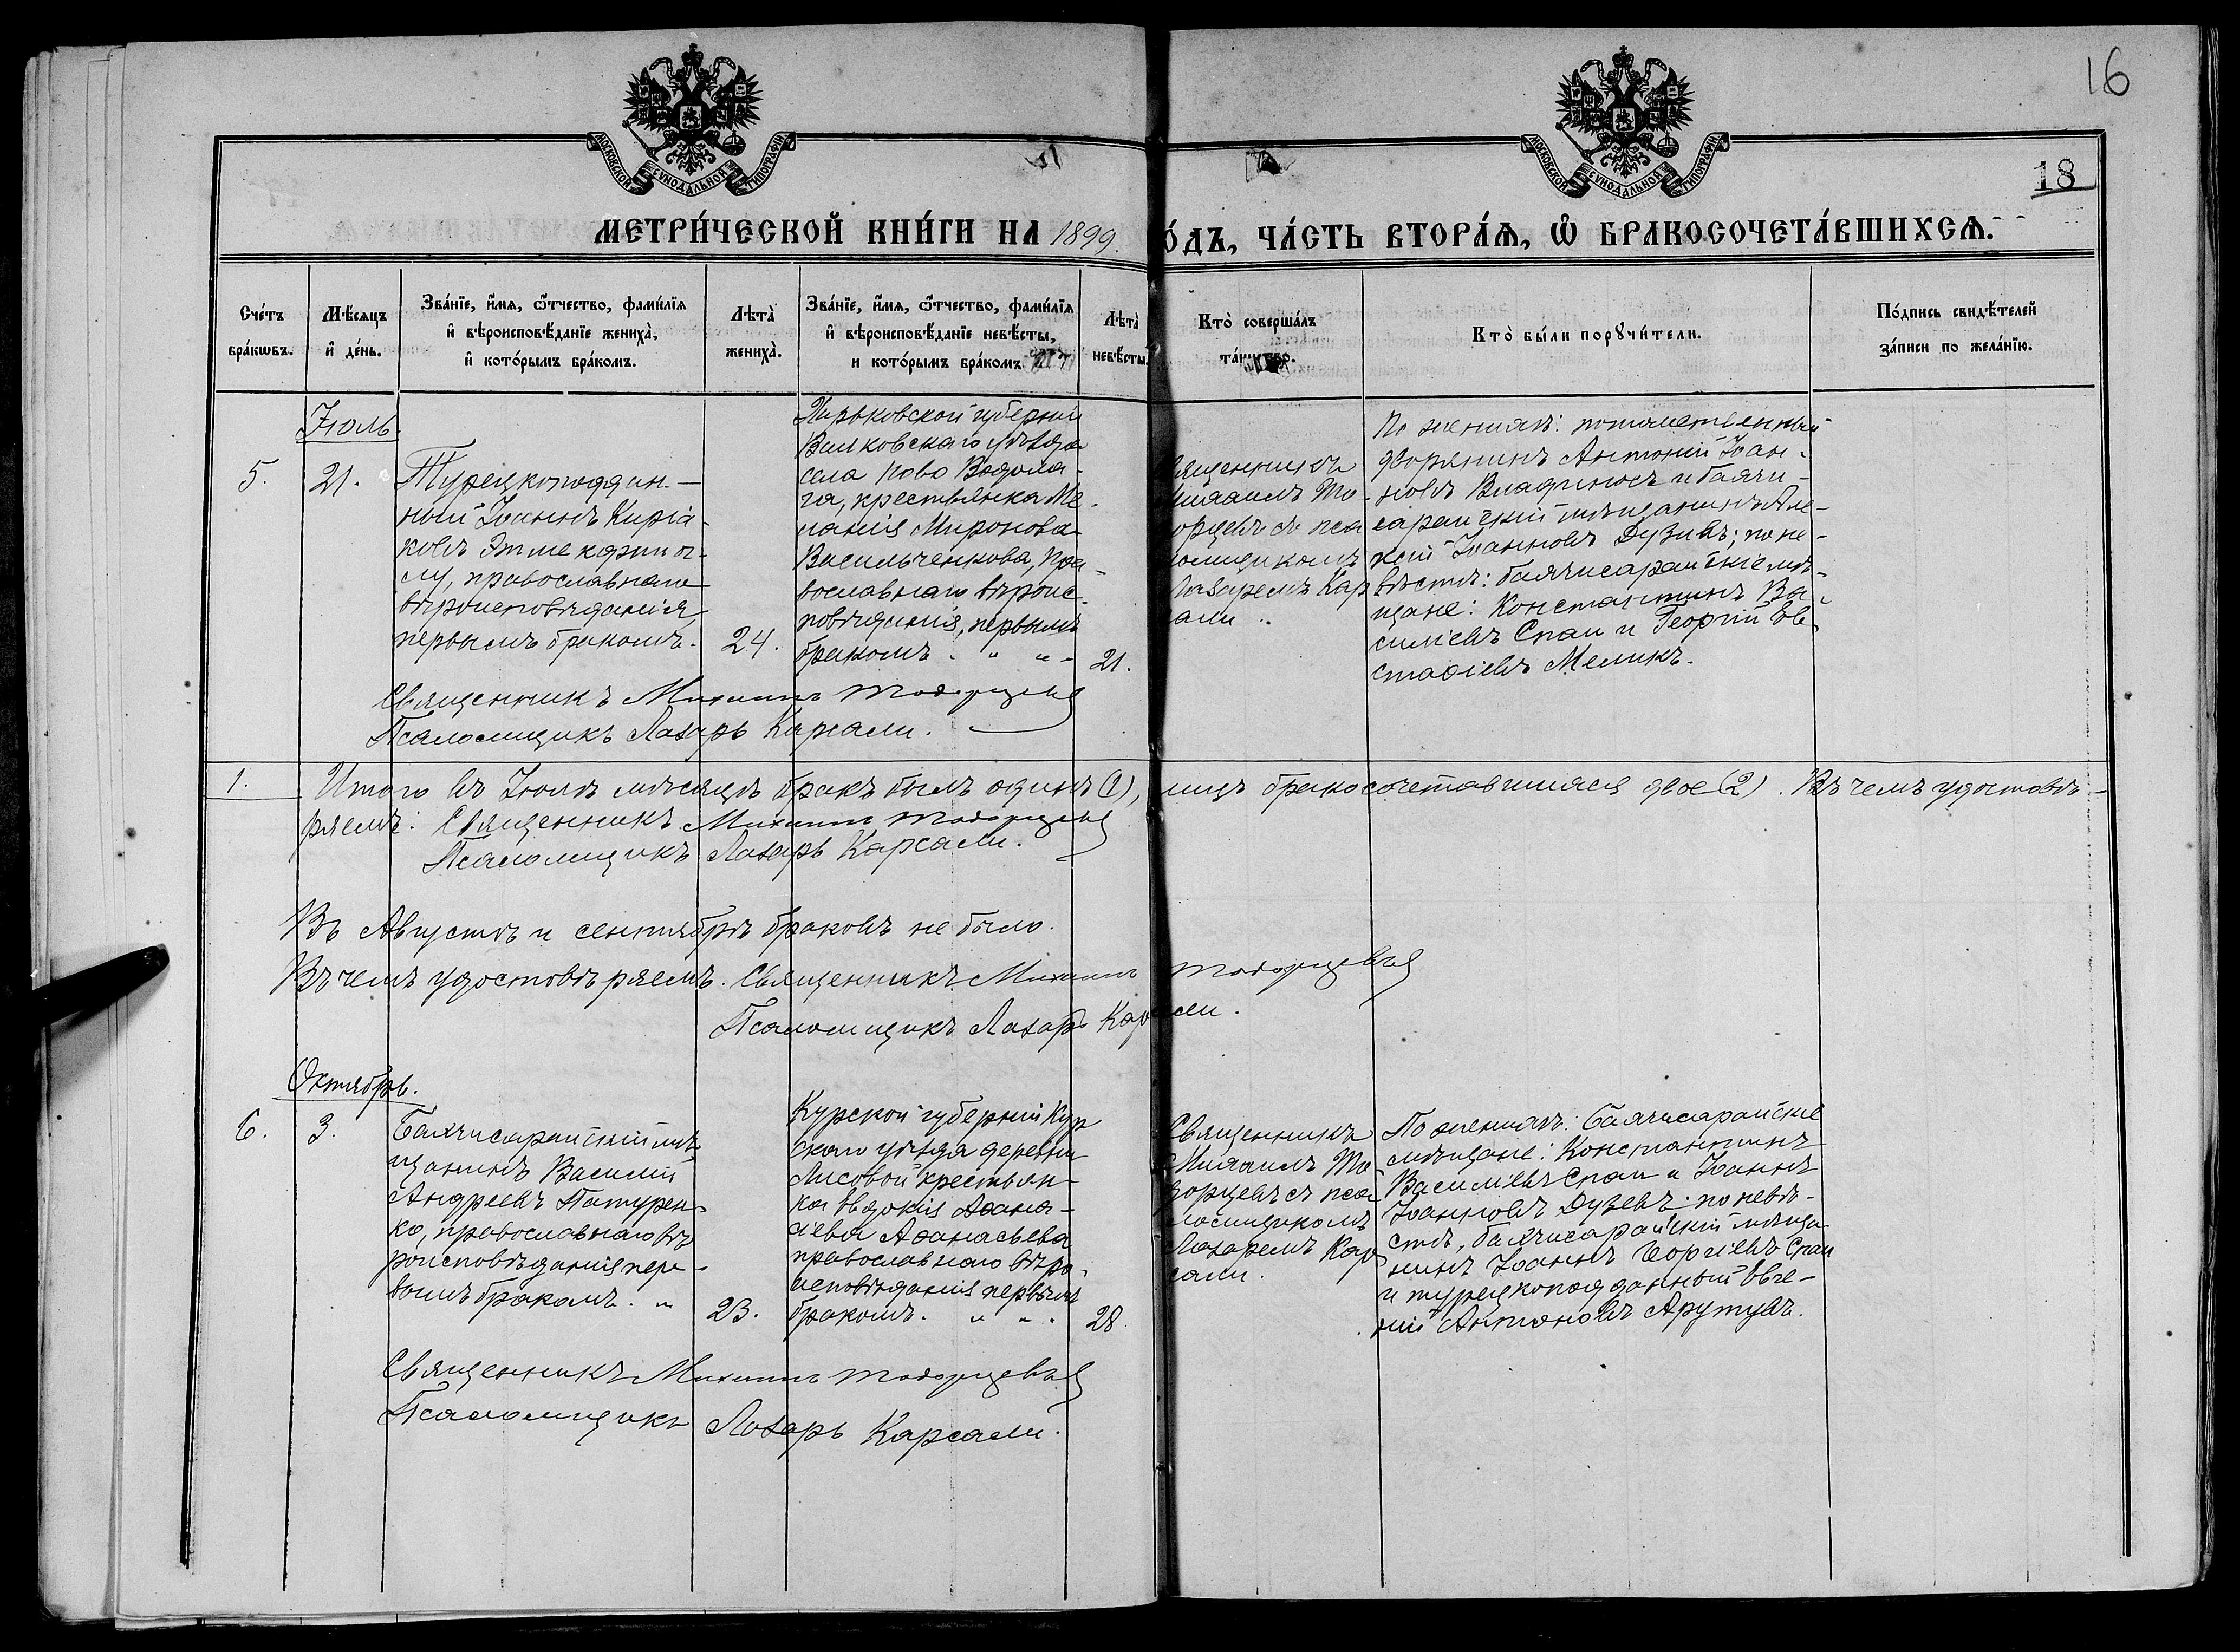 16
18
МОСКОВСКОЙ СѴНОДАЛЬНОЙ ТИПОГРАФІИ
МОСКОВСКОЙ СѴНОДАЛЬНОЙ ТИПОГРАФІИ
МЕТРИ́ЧЕСКОЙ КНИ́ГИ НА 1899
О́ДЪ, ЧА́СТЬ ВТОРА́Ѧ, Ѽ БРАКОСОЧЕТА́ВШИХСѦ.
Сче́тъ
бра́кωвъ.
Мѣ́сяцъ
и҆ де́нь.
Зва́нїе, и҆́мя, ѻ҆́тчество, фами́лїя
и҆ вѣроисповѣ́данїе жениха̀,
и҆ кото́рымъ бра́комъ.
Лѣта̀
жениха̀.
Зва́нїе, и҆́мя, ѻ҆́тчество, фами́лїя
и҆ вѣроисповѣ́данїе невѣ́сты,
и кото́рымъ бра́комъ
Лѣта̀
невѣ́сты
Кто̀ соверша́лъ
та́инство.
Кто̀ бы́ли порꙋчи́тели.
По́дпись свидѣ́телей
за́писи по жела́нїю.
Іюль
5.
21.
Турецкоподдан-
ный Іоаннъ Киріа-
ковъ
православнаго
вѣроисповѣданія,
первымъ бракомъ.
24.
Харьковской губерніи
Валковскаго уѣзда
села Ново Водола-
га, крестьянка Ме-
ланія Миронова
Васильченкова, пра-
вославнаго вѣроис-
повѣданія, первымъ
бракомъ. " "
21.
вященникъ
Михаилъ То-
орцевъ съ пса
ломщикомъ
Лазаремъ Кар
сали..
По женихѣ: потомственный
дворянинъ Антоній Іоан-
новъ и бахчи-
сарайскій мѣщанинъ Але-
ксій Іоанновъ Дузивъ; по не-
вѣстѣ: бахчисарайскіе мѣ-
щане: Константинъ Ва-
силіевъ Спаи и Георгій Ев-
стафіевъ Меликъ.
Священникъ Михаилъ
Псаломщикъ Лазарь Карсали.
1.
Итого въ Іюлѣ мѣсяцѣ бракъ былъ одинъ (1), лицъ бракосочетавшихся двое (2). Въ чемъ удостовѣ-
ряемъ: Священникъ Михаилъ
Псаломщикъ Лазарь Карсали.
Въ Августѣ и сентябрѣ браковъ не было.
Въ чемъ удостовѣряемъ. Священникъ Михаилъ
Псаломщикъ Лазарь Карсали.
Октябрь.
6.
3.
Бахчисарайскій мѣ-
щанинъ Василій
Андреевъ Патурен-
ко, православнаго вѣ-
роисповѣданія пер-
вымъ бракомъ. "
23.
Курской губерніи Кур
скаго уѣзда деревни
Лисовой крестьян-
ка Евдокія Аѳана-
сіева Аѳанасьева
православнаго вѣро-
исповѣданія первымъ
бракомъ. " ".
28.
Священникъ
Михаилъ То
дорцевъ съ пса
ломщикомъ
Лазаремъ Кар
сали.
По женихѣ: бахчисарайскіе
мѣщане: Константинъ
Василіевъ Спаи и Іоаннъ
Іоанновъ Дузевъ; по невѣ-
стѣ, бахчисарайскій мѣща-
нинъ Іоаннъ Георгіевъ Спаи
и турецкоподданный Евге-
ній Антоновъ Арутувъ.
Священникъ Михаилъ
Псаломщикъ Лазарь Карсали.